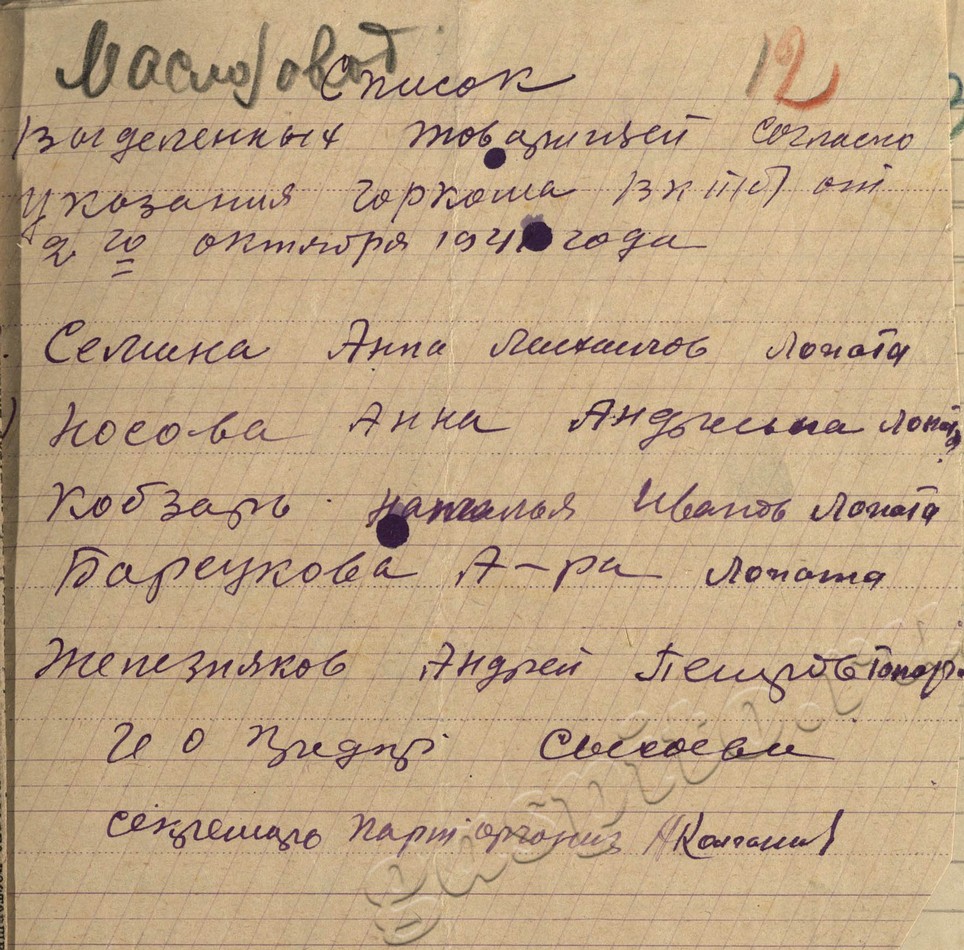 Маслозавод 12
Список
Выделенных товарищей согласно
Указания Горкома ВКП(б) от
2 го октября 1941 года
Семина Анна Михайлов лопата
Носова Анна Андреевна лопата
Кобзарь Наталья Иванов лопата
Барсукова А-ра лопата
Железняков Андрей Петров Топор
И О
секретарь Парторганиз